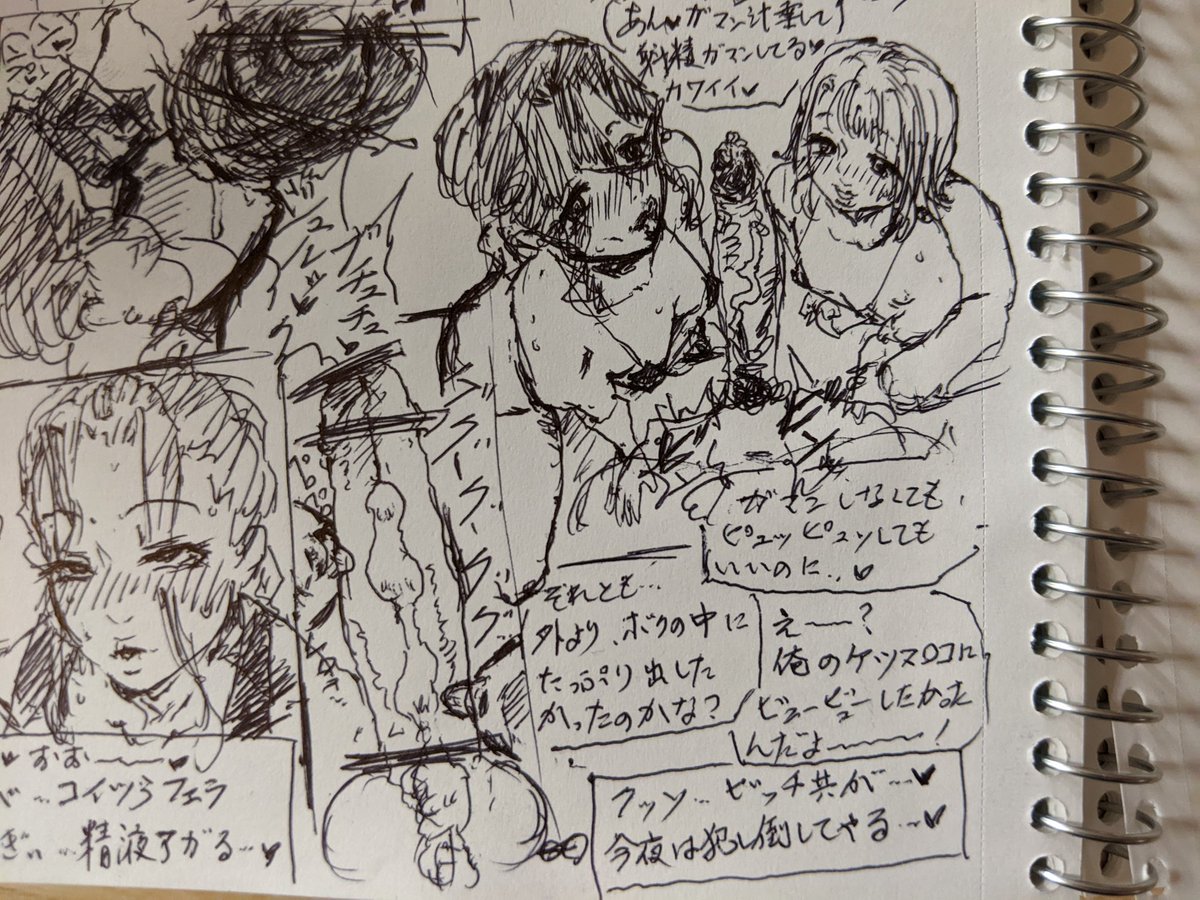 あん♥ガマン汁垂して
射精ガマンしてる♥
カワイイ♥
ブチュチュ
ガマンしなくても、
ピュッピュッしても
いいのに..♥
それとも…
外より、ボクの中に
たっぷり出した
かったのかな?
え――?
俺のケツマ
ビュービューしたかった
んだよ～～～!
クッソ…ビッチ共が…♥
今夜は犯し倒してやる…♥
♥おお～～♥
…コイツらフェラ
ぎぃ…精液アガる…♥